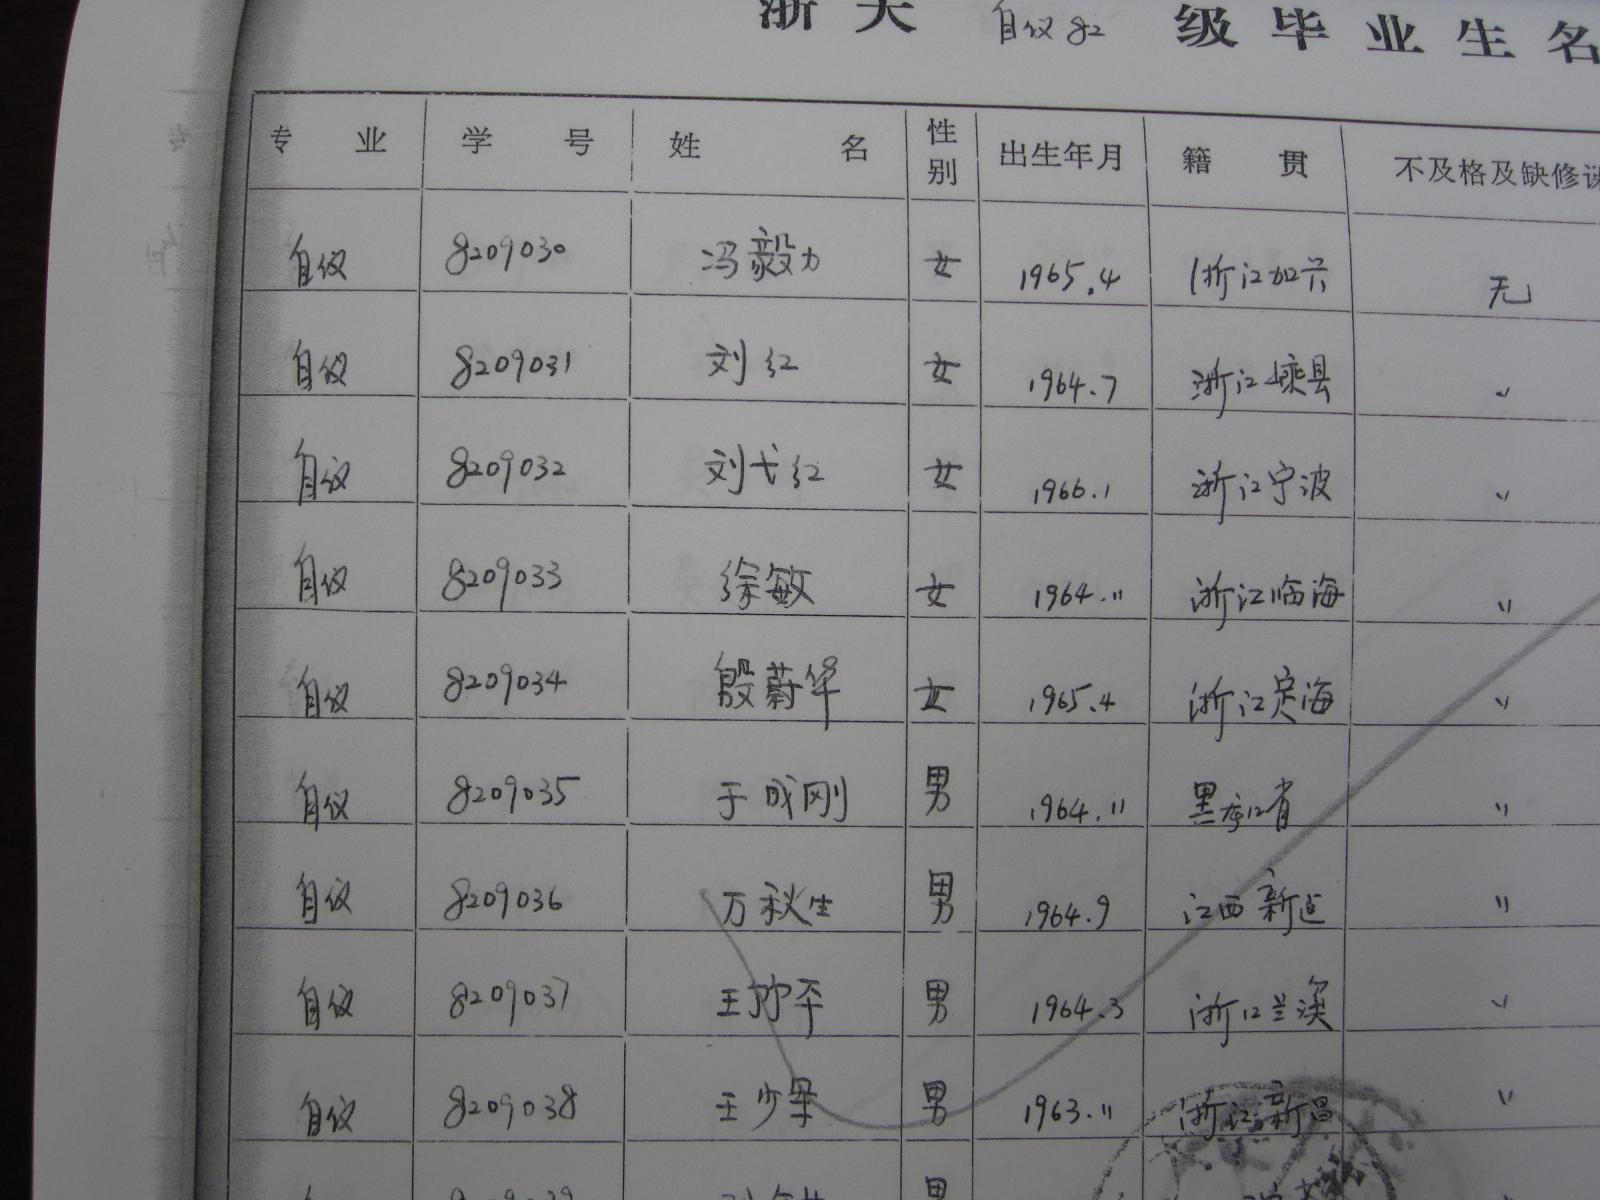 浙大 自仪82 级毕业生名
专业 学号 姓名 性别 出生年月 籍贯 不及格及缺修课
自仪 8209030 冯毅力 女 1965.4 浙江加兴 无
自仪 8209031 刘红 女 1964.7 浙江嵊县 〃
自仪 8209032 刘弋红 女 1966.1 浙江宁波 〃
自仪 8209033 徐敏 女 1964.11 浙江临海 〃
自仪 8209034 殷蔚华 女 1965.4 浙江定海 〃
自仪 8209035 于成刚 男 1964.11 黑龙江省 〃
自仪 8209036 万秋生 男 1964.9 江西新建 〃
自仪 8209037 王弥平 男 1964.3 浙江兰溪 〃
自仪 8209038 王少军 男 1963.11 浙江新昌 〃
8209039 男